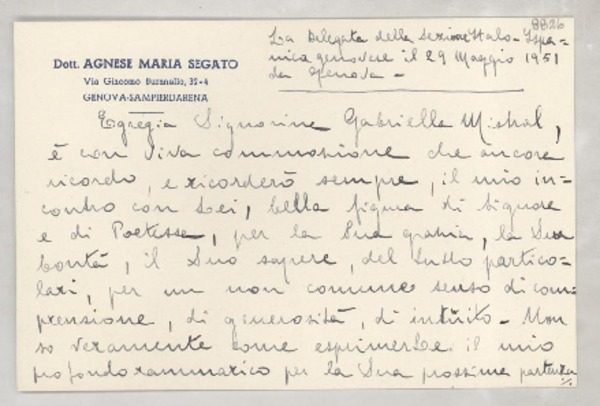 8826
La Delegata della sezione Italo-Ispa-
nica genovese il 29 Maggio 1951
da Genova -
Dott. AGNESE MARIA SEGATO
Via Giacomo Buranello, 32-4
GENOVA-SAMPIERDARENA
Egregia Signorina Gabriella Mistral,
è con viva commozione che ancora
ricordo, e ricorderò sempre, il mio in-
contro con Lei, bella figura di Signora
e di Poetessa, per la Sua grazia, la Sua
bontà, il Suo sapere, del tutto partico-
lari, per un non comune senso di com-
prensione, di generosità, di intùito - Non
so veramente come esprimerLe il mio
profondo rammarico per la Sua prossima partenza
./.